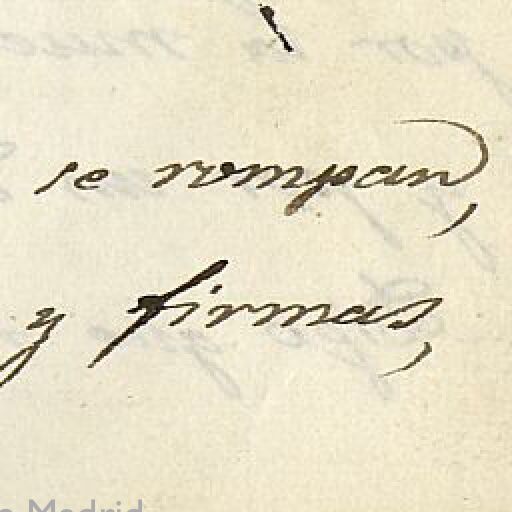 se rompan,
y firmas,
Madrid